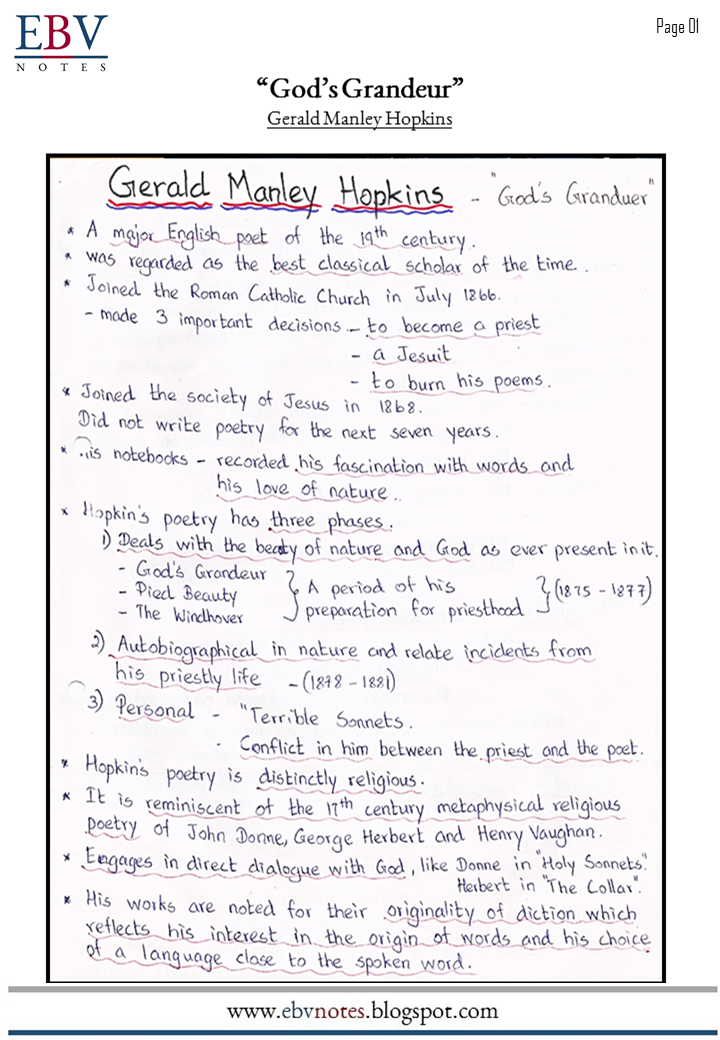 EBV
NOTES
Page 01
“God’s Grandeur”
Gerald Manley Hopkins
Gerald Manley Hopkins - "God's Granduer"
* A major English poet of the 19th century.
* was regarded as the best classical scholar of the time.
* Joined the Roman Catholic Church in July 1866.
- made 3 important decisions - to become a priest
- a Jesuit
- to burn his poems.
* Joined the society of Jesus in 1868.
Did not write poetry for the next seven years.
* His notebooks - recorded his fascination with words and
his love of nature..
* Hopkin's poetry has three phases.
1) Deals with the beaty of nature and God as ever present in it.
- God's Grandeur
- Pied Beauty
- The Windhover
A period of his
preparation for priesthood
(1875 - 1877)
2) Autobiographical in nature and relate incidents from
his priestly life - (1878 - 1881)
3) Personal - "Terrible Sonnets.
- Conflict in him between the priest and the poet.
* Hopkin's poetry is distinctly religious.
* It is reminiscent of the 17th century metaphysical religious
poetry of John Donne, George Herbert and Henry Vaughan.
* Engages in direct dialogue with God, like Donne in "Holy Sonnets".
Herbert in "The Collar".
* His works are noted for their originality of diction which
reflects his interest in the origin of words and his choice
of a language close to the spoken word.
www.ebvnotes.blogspot.com